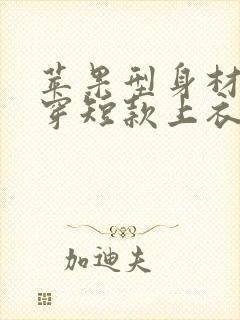 苹果型身材
穿短款上衣
加迪夫